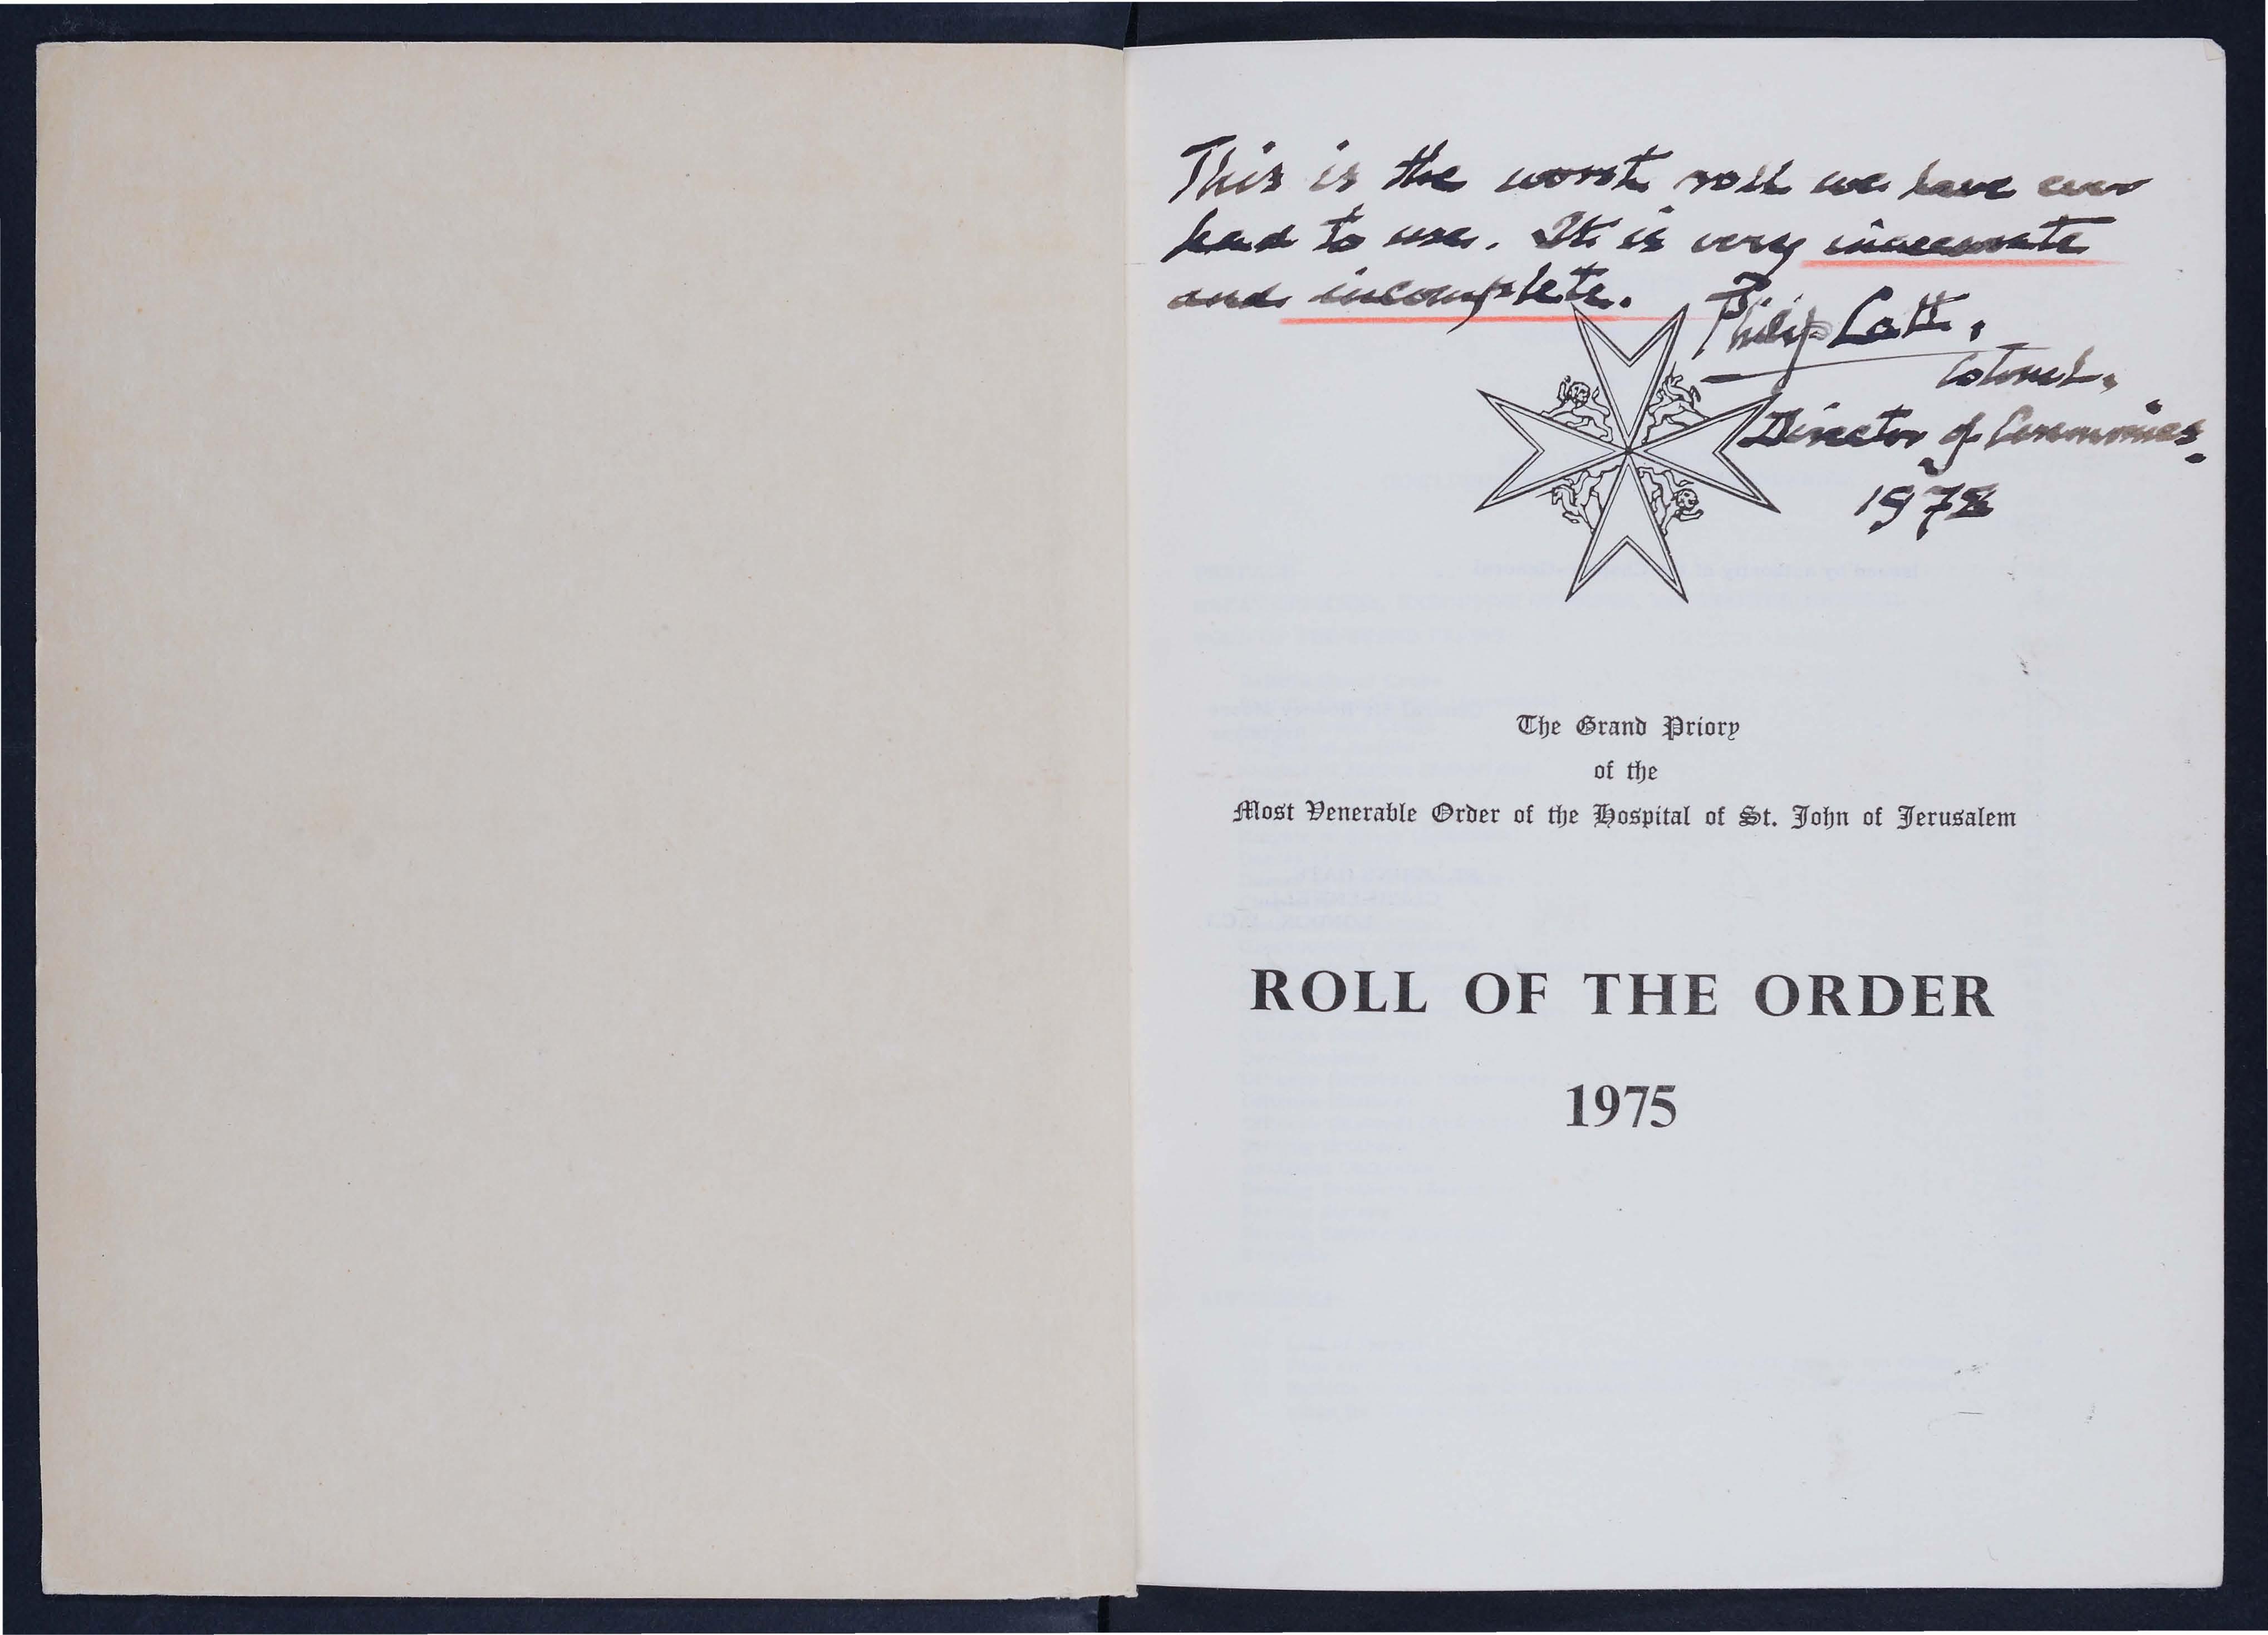 This is the worst roll we have ever
had to use. It is very inaccurate
and incomplete.
Philip Catt.
Colonel.
Director of Ceremonies.
1978
The Grand Priory
of the
Most Venerable Order of the Hospital of St. John of Jerusalem
ROLL OF THE ORDER
1975